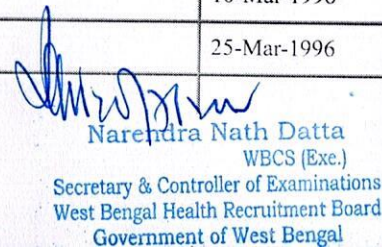 25-Mar-1996
Narendra Nath Datta
WBCS (Exe.)
Secretary & Controller of Examinations
West Bengal Health Recruitment Board
Government of West Bengal